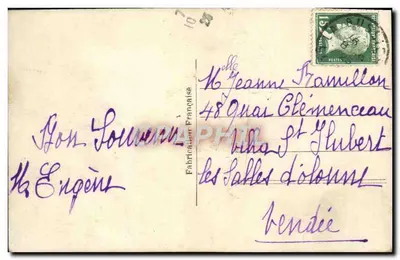 7
10
25
Bon Souvenir
M Eugène
Fabrication Française
Mlle Jeanne Ramillon
48 Quai Clémenceau
St Hubert
les Sables d'olonne
Vendée